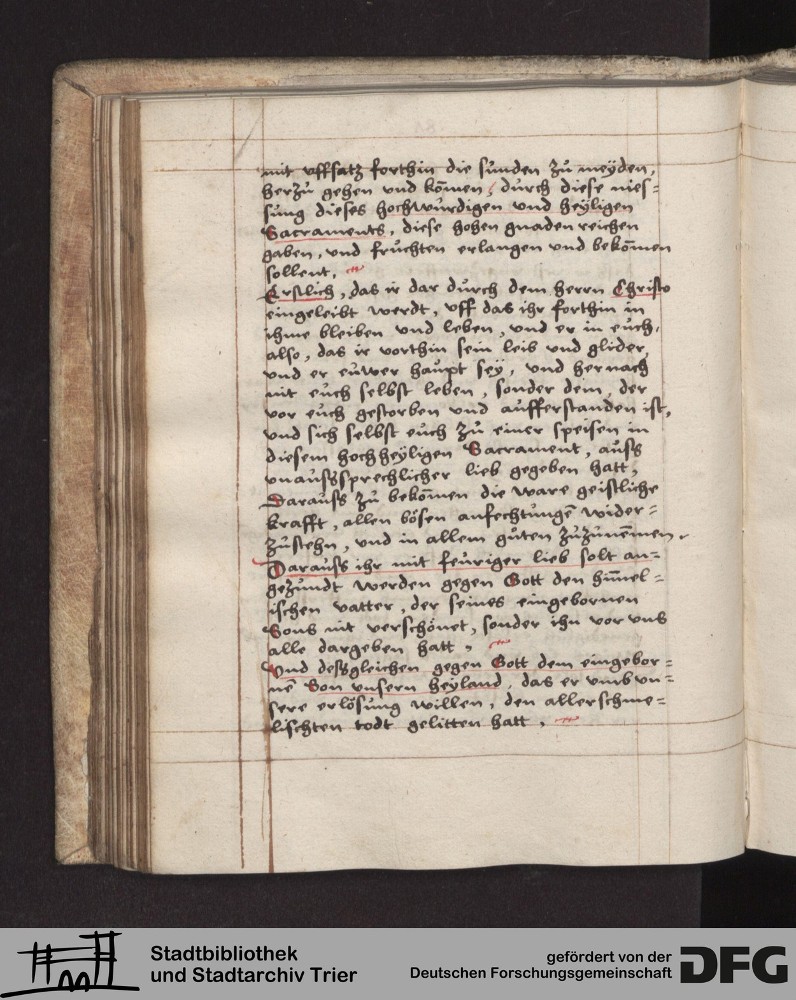 mit vffsatz forthin die sünden zů meÿden,
herzů gehen vnd kom̄en, durch diese nies=
sung dieses hochwürdigen vnd heÿligen
Sacraments, diese hohen gnaden reichen
gaben, vnd früchten erlangen vnd bekom̄en
sollent,
Erstlich, das ir dar durch dem herrn Christo
eingeleibt werdt, vff das ihr forthin in
ihme bleiben vnd leben, vnd er in eůch,
also, das ir vorthin sein leib vnd glider,
vnd er eůwer haůpt seÿ, vnd hernach
nit eůch selbst leben, sonder dem, der
vor eůch gestorben vnd aůfferstanden ist,
vnd sich selbst eůch zů einer speisen in
diesem hochheÿligen Sacrament, aůss
vnaůssprechlicher lieb gegeben hatt,
Daraůss zů bekom̄en die ware geistliche
krafft, allen bösen anfechtůngē wider=
zůstehn, vnd in allem gůten zůzůnem̄en.
Daraůss ihr mit feůriger lieb solt an=
gezůndt werden gegen Gott den him̄el=
ischen vatter, der seines eingebornen
Sons nit verschönet, sonder ihn vor vns
alle dargeben hatt,
Vnd dessgleichen gegen Gott dem eingebor=
nē Son vnsern heyland, das er vmb vn=
sere erlösung willen, den allerschme=
lischten todt gelitten hatt,
Stadtbibliothek
und Stadtarchiv Trier
gefördert von der
Deutschen Forschungsgemeinschaft
DFG